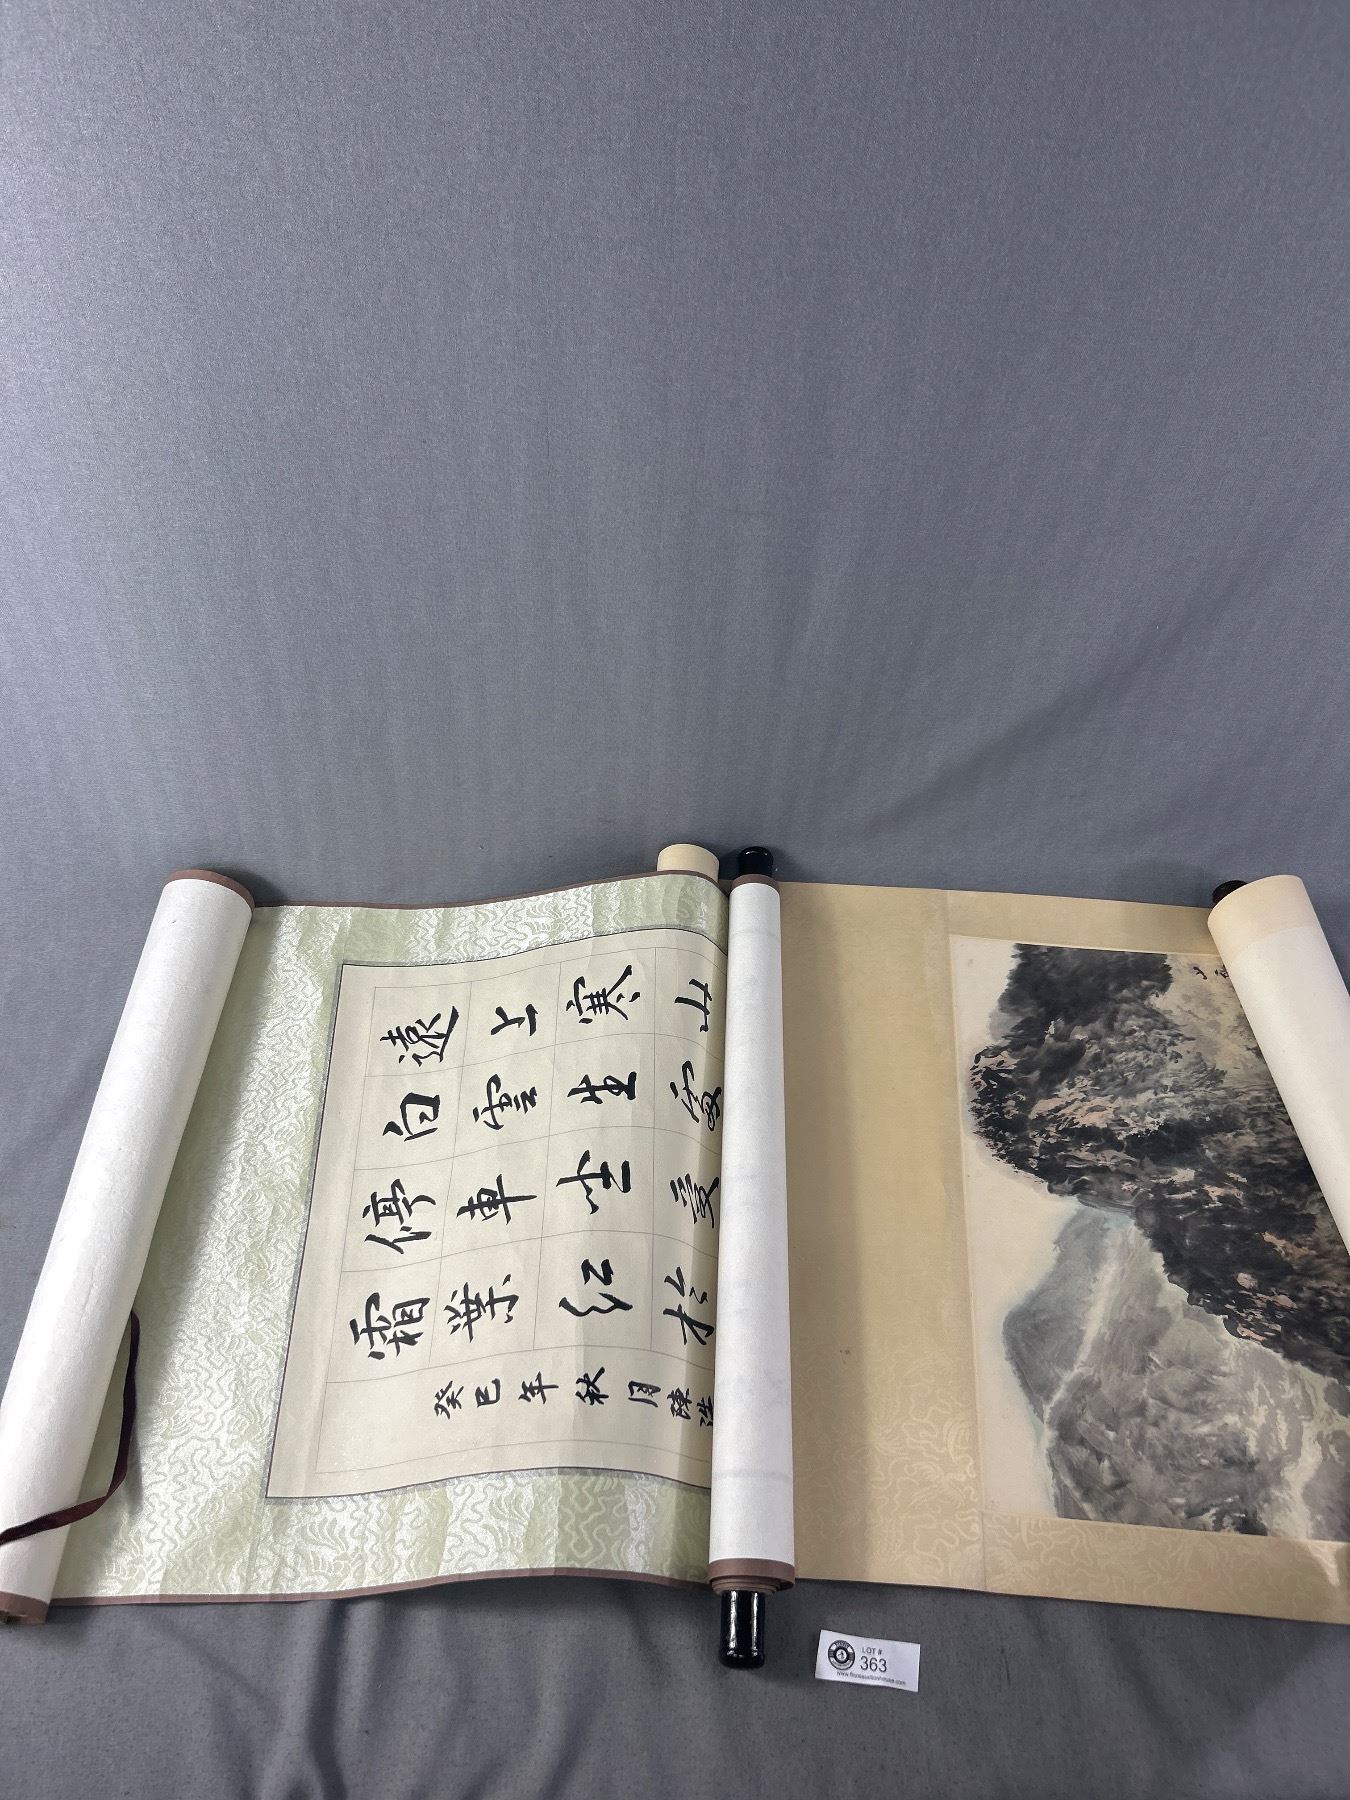 遠上寒山
白雲生處
停車坐愛
霜葉紅於
癸巳年秋月陳
LOT #
363